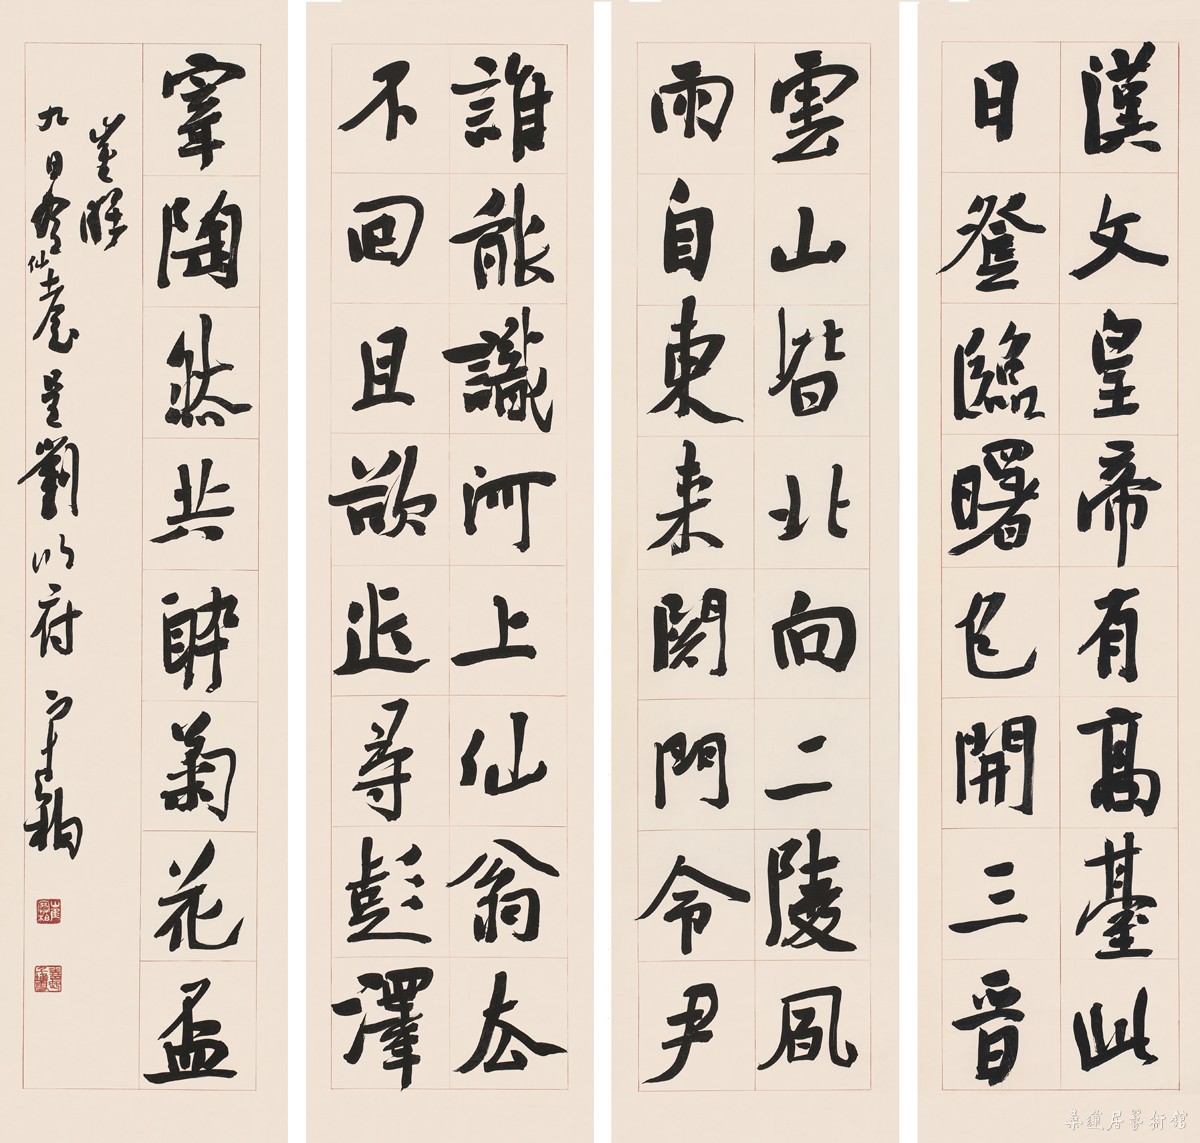 漢文皇帝有高臺此
日登臨曙色開三晉
雲山皆北向二陵風
雨自東來關門令尹
誰能識河上仙翁去
不回且欲近尋彭澤
宰陶然共醉菊花盃
崔曙
九日登仙臺呈劉明府 寒柏
桑蓮居藝術館